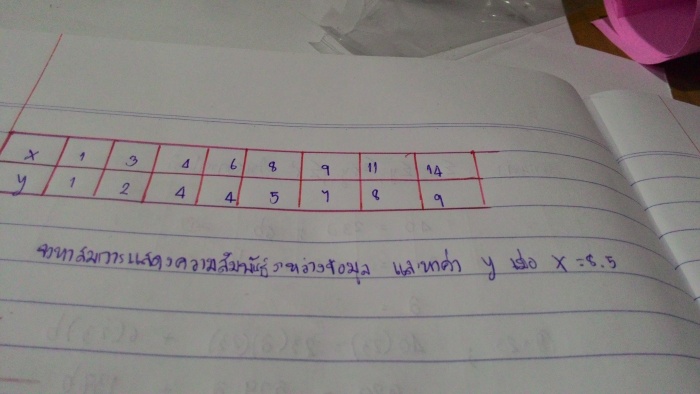 x 1 3 4 6 8 9 11 14
y 1 2 4 4 5 7 8 9
จงหาสมการแสดงความสัมพันธ์ระหว่างข้อมูล และหาค่า y เมื่อ x = 8.5